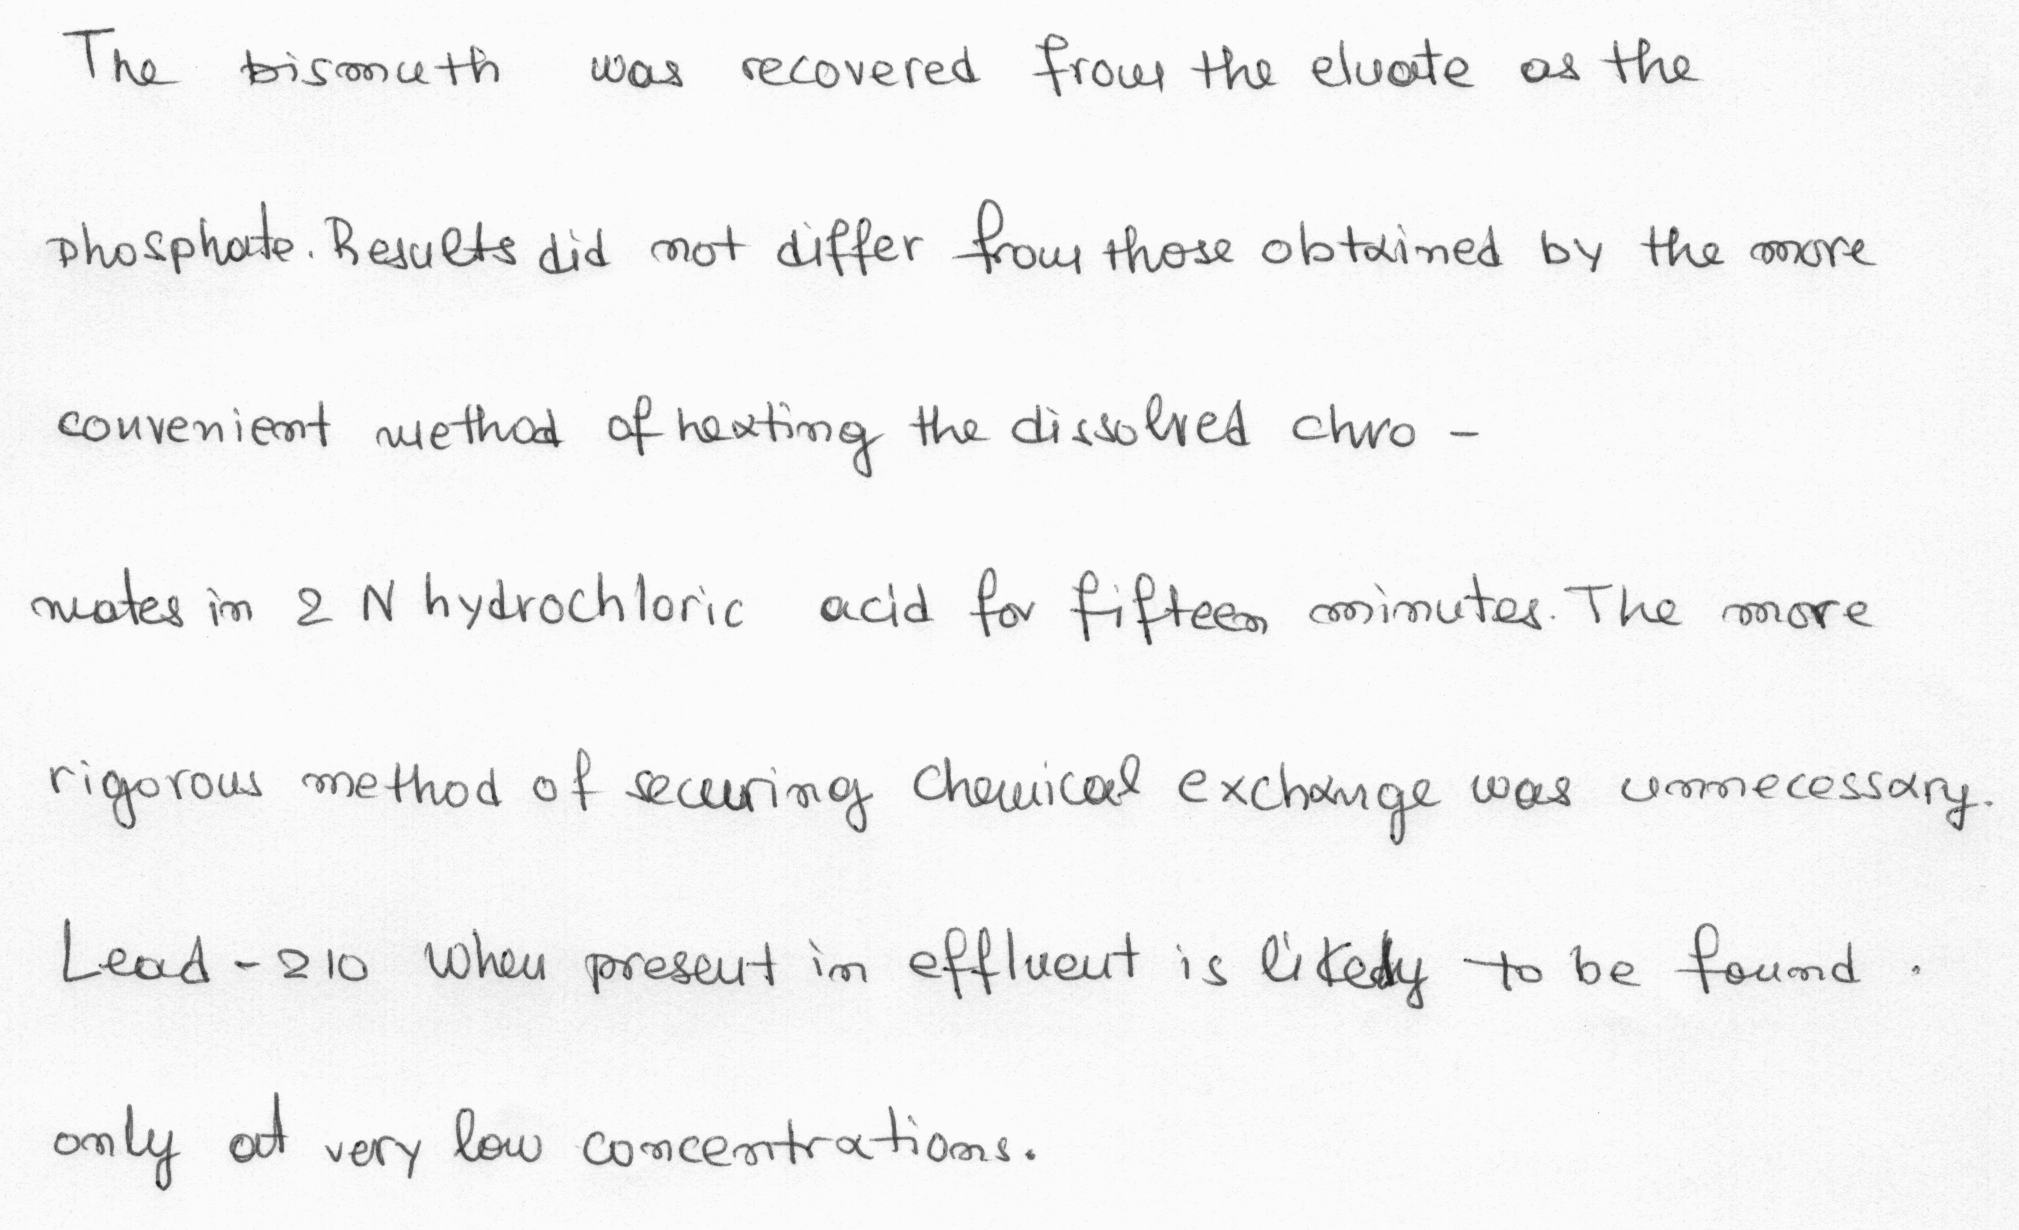 The bismuth was recovered from the eluate as the
phosphate. Results did not differ from those obtained by the more
convenient method of heating the dissolved chro -
mates in 2 N hydrochloric acid for fifteen minutes. The more
rigorous method of securing chemical exchange was unnecessary.
Lead - 210 when present in effluent is likely to be found .
only at very low concentrations.